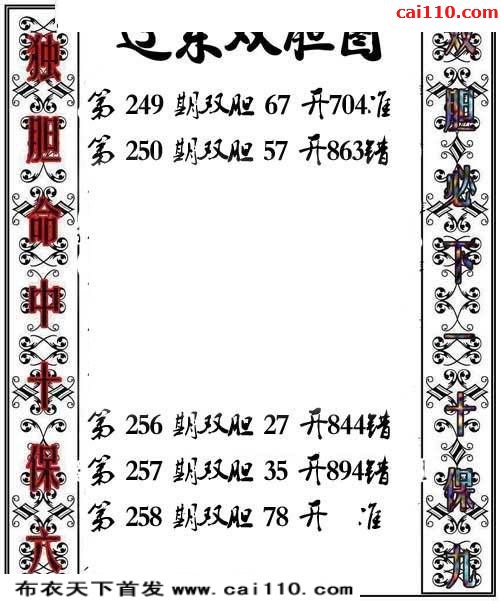 cai110.com
辽东双胆图
第 249 期双胆 67 开704准
第 250 期双胆 57 开863错
第 256 期双胆 27 开844错
第 257 期双胆 35 开894错
第 258 期双胆 78 开 准
独胆命中十保六
双胆必下一十保九
布衣天下首发 www.cai110.com